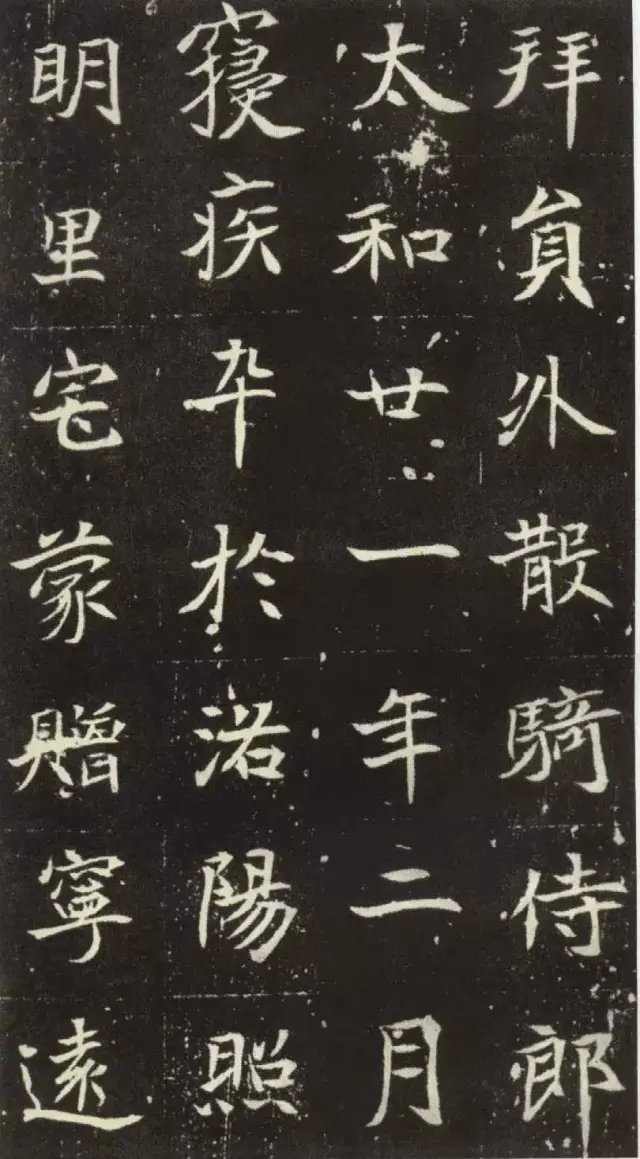 拜員外散騎侍郎
太和廿一年二月
寑疾卒於洛陽照
明里宅蒙贈寧遠